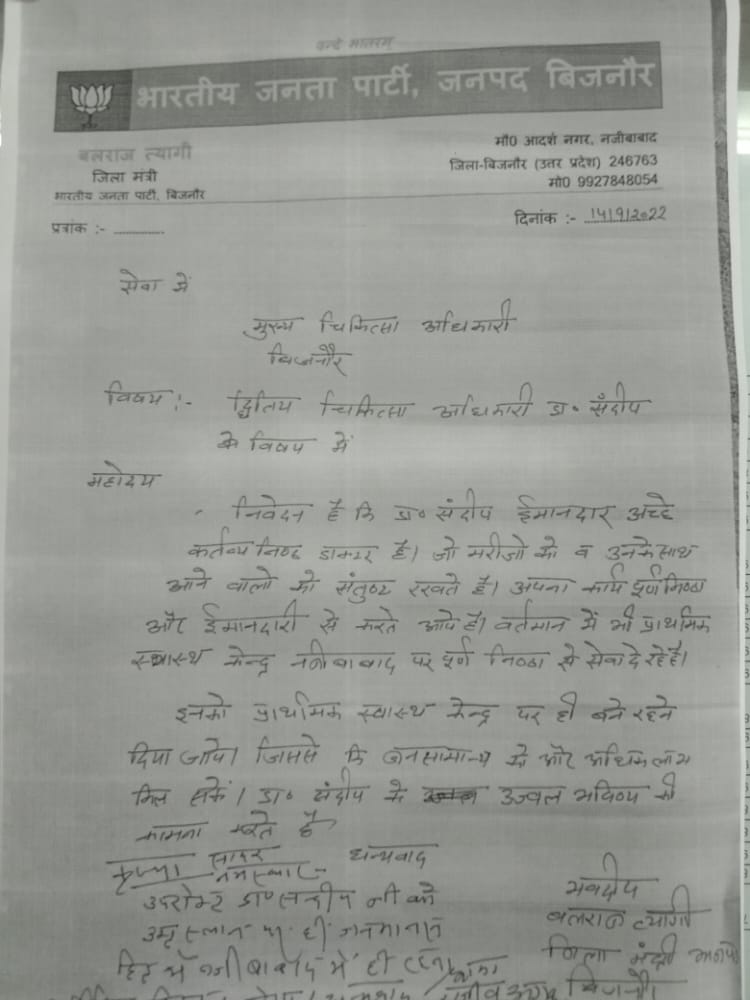 वन्दे मातरम्
भारतीय जनता पार्टी, जनपद बिजनौर
बलराज त्यागी
जिला मंत्री
भारतीय जनता पार्टी, बिजनौर
मौ0 आदर्श नगर, नजीबाबाद
जिला-बिजनौर (उत्तर प्रदेश) 246763
मो0 9927848054
प्रत्रांक :- ..............
दिनांक :- 14/9/2022
सेवा में
मुख्य चिकित्सा अधिकारी
बिजनौर
विषय :- द्वितिय चिकित्सा अधिकारी डा० संदीप
के विषय में
महोदय
निवेदन है कि डा० संदीप ईमानदार अच्छे
कर्तव्य निष्ठ डाक्टर है। जो मरीजो को व उनके साथ
आने वालो को संतुष्ट रखते है। अपना कार्य पूर्ण निष्ठा
और ईमानदारी से करते आये है। वर्तमान में भी प्राथमिक
स्वास्थ केन्द्र नजीबाबाद पर पूर्ण निष्ठा से सेवा दे रहे है।
इनको प्राथमिक स्वास्थ केन्द्र पर ही बने रहने
दिया जाये। जिससे कि जनसामान्य को और अधिक लाभ
मिल सकें। डा० संदीप के उज्वल भविष्य की
कामना करते है
धन्यवाद
सादर
नमस्कार
भवदीय
बलराज त्यागी
जिला मंत्री
बिजनौर
उपरोक्त डा० सन्दीप जी को
पर ही
हित में नजीबाबाद में ही